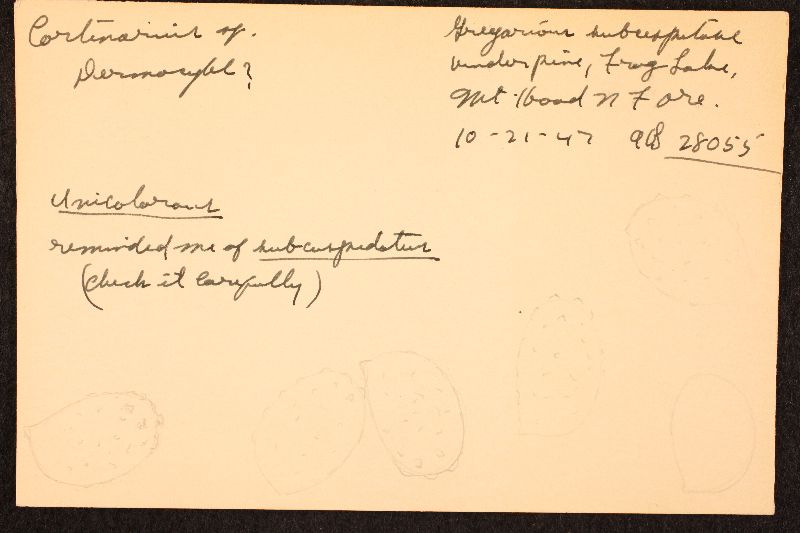 Cortinarius sp.
Dermocybe?
Gregarious subcespitose
under pine, Frog Lake,
Mt Hood N F Ore.
10-21-47 28055
Unicolorous
reminded me of subcuspidatus
(check it carefully)